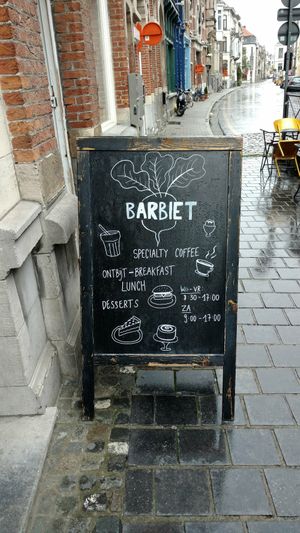 BARBIET
SPECIALTY COFFEE
ONTBIJT - BREAKFAST
LUNCH
WO - VR:
8:30 - 17:00
DESSERTS
ZA
9:00 - 17:00